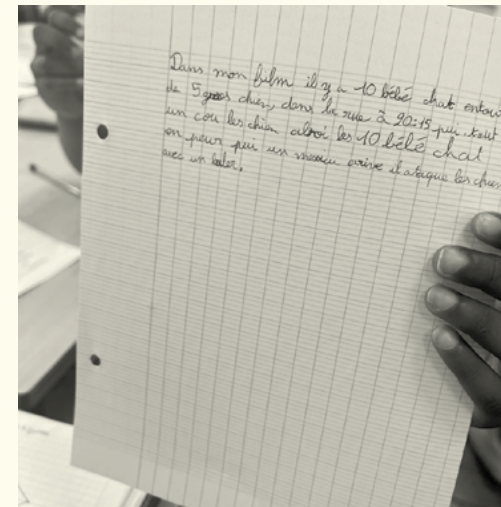 Dans mon film il y a 10 bébé chat entour
de 5 gros chien, dans la rue à 20:15 puis tout
un cou les chien aboi les 10 bébé chat
on peur puis un monsieur arive il ataque les chien
avec un